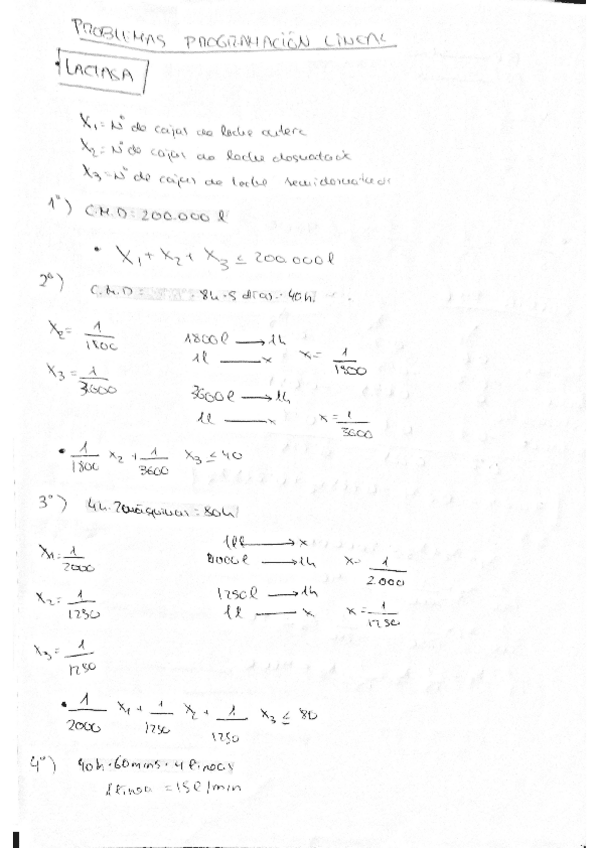 PROBLEMAS PROGRAMACIÓN LINEAL
• LACTASA
X₁ = Nº de cajas de leche entera
X₂ = Nº de cajas de leche desnatada
X₃ = Nº de cajas de leche semidesnatada
1º) C.M.D: 200.000 l
• X₁ + X₂ + X₃ ≤ 200.000 l
2º) C.M.D: 8h · 5 días = 40h
X₂ = 1/1800 1800 l → 1h
1 l — x x = 1/1800
X₃ = 1/3600 3600 l → 1h
1 l — x x = 1/3600
• 1/1800 x₂ + 1/3600 x₃ ≤ 40
3º) máquinas = 80h
X₁ = 1/2000 1 l → x
2000 l → 1h x = 1/2.000
X₂ = 1/1250 1250 l → 1h
1 l — x x = 1/1250
X₃ = 1/1250
• 1/2000 x₁ + 1/1250 x₂ + 1/1250 x₃ ≤ 80
4º) 40h · 60mins · 4 líneas
1 línea = 15 l/min